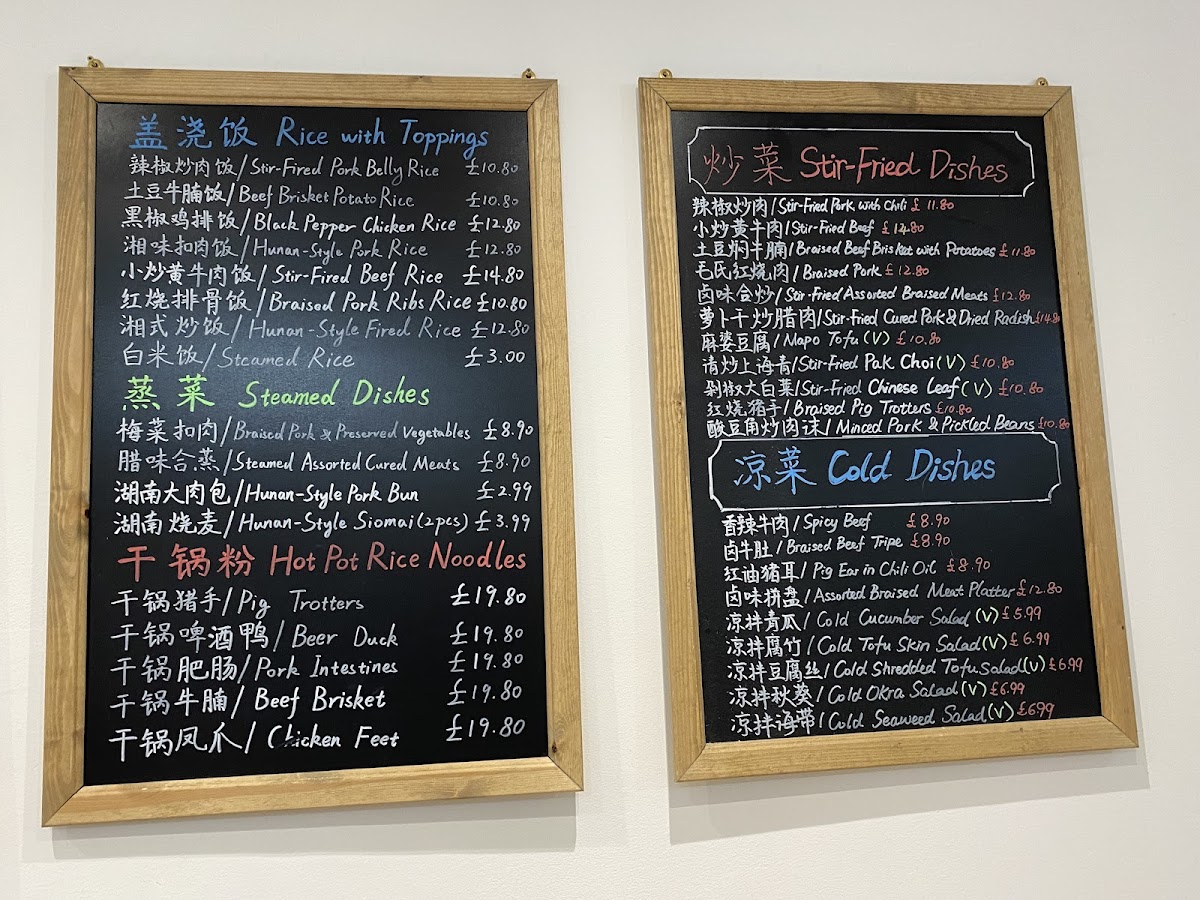 盖浇饭 Rice with Toppings
辣椒炒肉饭/Stir-Fired Pork Belly Rice £10.80
土豆牛腩饭/Beef Brisket Potato Rice £10.80
黑椒鸡排饭/Black Pepper Chicken Rice £12.80
湘味扣肉饭/Hunan-Style Pork Rice £12.80
小炒黄牛肉饭/Stir-Fired Beef Rice £14.80
红烧排骨饭/Braised Pork Ribs Rice £10.80
湘式炒饭/Hunan-Style Fired Rice £12.80
白米饭/Steamed Rice £3.00
蒸菜 Steamed Dishes
梅菜扣肉/Braised Pork & Preserved Vegetables £8.90
腊味合蒸/Steamed Assorted Cured Meats £8.90
湖南大肉包/Hunan-Style Pork Bun £2.99
湖南烧麦/Hunan-Style Siomai (2pcs) £3.99
干锅粉 Hot Pot Rice Noodles
干锅猪手/Pig Trotters £19.80
干锅啤酒鸭/Beer Duck £19.80
干锅肥肠/Pork Intestines £19.80
干锅牛腩/Beef Brisket £19.80
干锅凤爪/Chicken Feet £19.80
炒菜 Stir-Fried Dishes
辣椒炒肉/Stir-Fried Pork with Chili £11.80
小炒黄牛肉/Stir-Fried Beef £14.80
土豆焖牛腩/Braised Beef Brisket with Potatoes £11.80
毛氏红烧肉/Braised Pork £12.80
卤味合炒/Stir-Fried Assorted Braised Meats £12.80
萝卜干炒腊肉/Stir-Fried Cured Pork & Dried Radish £14.80
麻婆豆腐/Mapo Tofu (V) £10.80
清炒上海青/Stir-Fried Pak Choi (V) £10.80
剁椒大白菜/Stir-Fried Chinese Leaf (V) £10.80
红烧猪手/Braised Pig Trotters £10.80
酸豆角炒肉沫/Minced Pork & Pickled Beans £10.80
凉菜 Cold Dishes
香辣牛肉/Spicy Beef £8.90
卤牛肚/Braised Beef Tripe £8.90
红油猪耳/Pig Ear in Chili Oil £8.90
卤味拼盘/Assorted Braised Meat Platter £12.80
凉拌青瓜/Cold Cucumber Salad (V) £5.99
凉拌腐竹/Cold Tofu Skin Salad (V) £6.99
凉拌豆腐丝/Cold Shredded Tofu Salad (V) £6.99
凉拌秋葵/Cold Okra Salad (V) £6.99
凉拌海带/Cold Seaweed Salad (V) £6.99